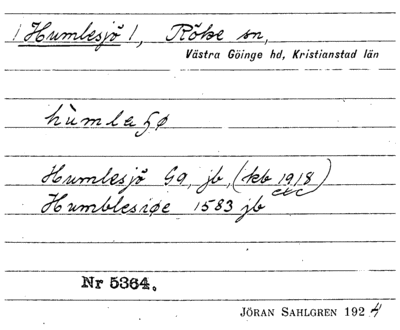 /Humlesjö/, Röke sn,
Västra Göinge hd, Kristianstad län
hùmlaʃø
Humlesjö Gg, jb, (kb 1918)
etc
Humblesiøe 1583 jb
Nr 5364.
JÖRAN SAHLGREN 1924